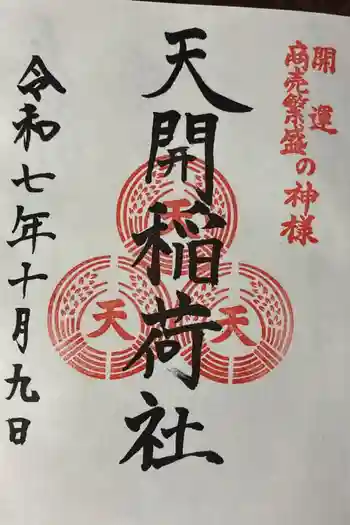 開運
商売繁盛の神様
天開稲荷社
天
天
天
令和七年十月九日